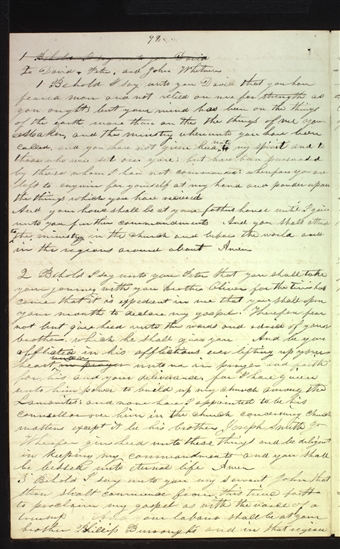 78
1 Behold I say unto you David
To David, Peter, and John Whitmer
1 Behold I say unto you David that you have
feared man and not relied on me for strength as
you ought but your mind has been on the things
of the earth more than on the things of me your
Maker, and the ministry whereunto you have been
called, and you have not given heed unto my spirit and to
those who were set over you; but have been persuaded
by those whom I have not commanded wherefore you are
left to enquire for yourself at my hand and ponder upon
the things which you have received
And your home shall be at your fathers house until I give
unto you further commandments And you shall attend
to the ministry in the church and before the world and
in the regions around about Amen
2 Behold I say unto you Peter that you shall take
your journey with you brother Oliver for the time has
come that it is expedient in me that you shall open
your mouth to declare my gospel. Therefore fear
not but give heed unto the words and advice of your
brothers which he shall give you And be you
afflicted in his afflictions ever lifting up your
heart unto me in prayer and faith
for his and your deliverance for I have given
unto him power to build up my church among the
Lamanites and none have I appointed to be his
counsellor over him in the church concerning church
matters except it be his brother Joseph Smith Jr
Wherefore give heed unto these things and be diligent
in keeping my commandments and you shall
be blessed unto eternal life Amen
3 Behold I say unto you my servant John that
thou shalt commence from this time forth
to proclaim my gospel as with the voice of a
trump And your labour shall be at your
brother Phillip Burroughs and in that region